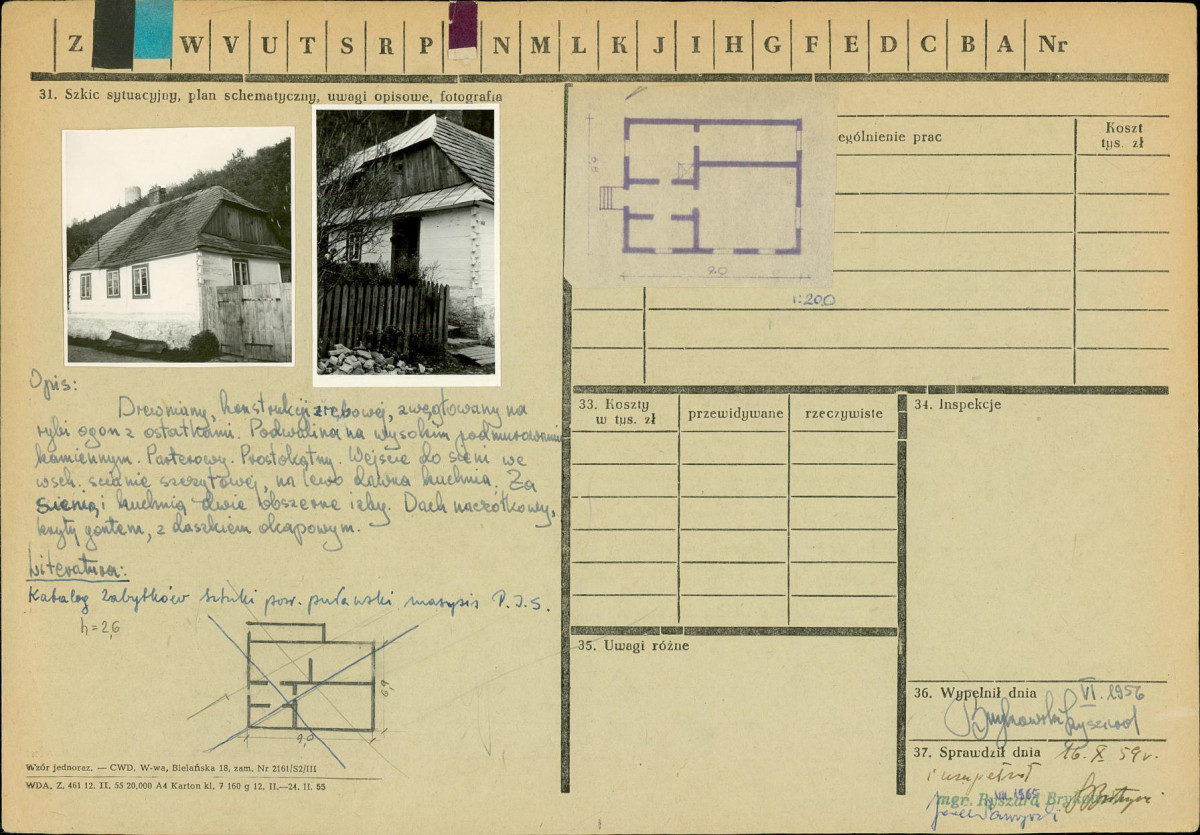 Z W V U T S R P N M L K J I H G F E D C B A Nr
31. Szkic sytuacyjny, plan schematyczny, uwagi opisowe, fotografia
Opis:
Drewniany, konstrukcji zrębowej, zwęgłowany na
rybi ogon z ostatkami. Podwalina na wysokim podmurowaniu
kamiennym. Parterowy. Prostokątny. Wejście do sieni we
wsch. ścianie szczytowej, na lewo dawna kuchnia. Za
sienią i kuchnią dwie obszerne izby. Dach naczółkowy,
kryty gontem, z daszkiem okapowym.
Literatura:
Katalog Zabytków Sztuki pow. puławski maszpis P.I.S.
h=2,6
6,9
9,0
Wzór jednoraz. — CWD, W-wa, Bielańska 18, zam. Nr 2161/S2/III
WDA, Z. 461 12. II. 55 20,000 A4 Karton kl. 7 160 g 12. II.—24. II. 55
ególnienie prac
Koszt
tys. zł
20
1:200
33. Koszty
w tys. zł
przewidywane
rzeczywiste
34. Inspekcje
35. Uwagi różne
36. Wypełnił dnia VI. 1956
Brykowski Ryszard
37. Sprawdził dnia 16. X 59 r.
i uzupełnił
mgr. Ryszard
VIII 1965